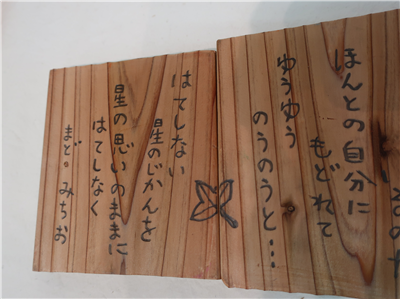 ほんとの自分に
もどれて
ゆうゆう
のうのうと…
はてしない
星のじかんを
星の思いのままに
はてしなく
まど・みちお